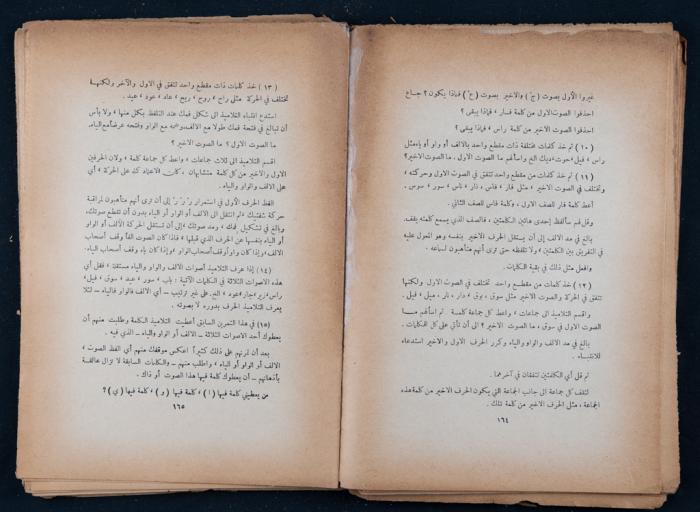 غيروا الأول بصوت (ج) والاخير بصوت (ع) فماذا يكون ؟ جاع
احذفوا الصوت الاول من كلمة فار ، فماذا يبقى ؟
احذفوا الصوت الاخير من كلمة راس ، فماذا يبقى ؟
(١٠) ثم خذ كلمات مختلفة ذات مقطع واحد بالالف أو واو أو ياء مثل
راس ، فيل ، حوت ، ديك الخ واسألهم ما الصوت الاول . ما الصوت الاخير ؟
(١١) ثم خذ كلمات من مقطع واحد تتفق في الصوت الاول وحركته ،
وتختلف في الصوت الاخير ، مثل فار ، فاس ، دار ، ناس ، سور ، سوس .
اعط كلمة فار للصف الاول ، وكلمة فاس للصف الثاني .
وقل لهم سألفظ إحدى هاتين الكلمتين ، فالصف الذي يسمع كلمته يقف .
بالغ في مد الالف إلى أن يستقل الحرف الاخير بنفسه وهو المعول عليه
في التفريق بين الكلمتين ، ولا تلفظه حتى ترى أنهم متأهبون لسماعه .
وافعل مثل ذلك في بقية الكلمات .
(١٢) خذ كلمات من مقطع واحد تختلف في الصوت الاول ولكنها
تتفق في الحركة والصوت الاخير مثل سوق ، بوق ، دار ، نار ، ميل ، فيل .
واقسم التلاميذ إلى جماعات ، واعط كل جماعة كلمة ثم اسألهم ما
الصوت الاول في سوق ، ما الصوت الاخير ؟ الى أن تأتي على كل الكلمات .
بالغ في مد الالف والواو والياء وكرر الحرف الاول والاخير استدعاء
للانتباه .
ثم قل أي الكلمتين تتفقان في آخرهما .
لتقف كل جماعة الى جانب الجماعة التي يكون الحرف الاخير من كلمة هذه
الجماعة ، مثل الحرف الاخير من كلمة تلك .
١٦٤
(١٣) خذ كلمات ذات مقطع واحد تتفق في الاول والآخر ولكنها
تختلف في الحركة مثل راح ، روح ، ريح ، عاد ، عود ، عيد .
استدع انتباه التلاميذ الى شكل فمك عند التلفظ بكل منها ، ولا بأس
أن تبالغ في فتحة فمك طولا مع الالف، وضمه مع الواو وفتحه عرضاً مع الياء.
ما الصوت الاول ؟ ما الصوت الاخير ؟
اقسم التلاميذ الى ثلاث جماعات ، واعط كل جماعة كلمة ، ولان الحرفين
الاول والاخير من كل كلمة متشابهان ، كان الاعتماد كله على الحركة ، أي
على الالف والواو والياء .
الفظ الحرف الاول في استمرار ر ر ر إلى أن ترى أنهم متأهبون لمراقبة
حركة شفتيك ، ثم انتقل الى الالف أو الواو أو الياء بدون أن تقطع صوتك،
وبالغ في تشكيل فمك ، ومد صوتك ، إلى أن تستقل الحركة الألف أو الواو
أو الياء بنفسها عن الحرف الذي قبلها ، فاذا كان الصوت ألفاً وقف أصحاب
الالف ، وإن كان واواً وقف أصحاب الواو ، وإذا كان ياء وقف أصحاب الياء.
(١٤) إذا عرف التلاميذ أصوات الالف والواو والياء مستقلة ، فقل أي
هذه الاصوات الثلاثة في الكلمات الآتية : باب ، سور ، عند ، سوق ، فيل ،
راس ، زير ، جار ، عود ، الخ. على غير ترتيب – أي الالف فالواو فالياء – لئلا
يعرف التلاميذ الحرف بدوره لا بصوته .
(١٥) في هذا التمرين السابق أعطيت التلاميذ الكلمة وطلبت منهم أن
يعطوك أحد الاصوات الثلاثة – الالف أو الواو والياء – الذي فيه .
بعد أن تمرنهم على ذلك كثيراً اعكس موقفك منهم أي الفظ الصوت ،
الالف أو الواو أو الياء ، واطلب منهم – والكلمات السابقة لا تزال عالقة
بأذهانهم – أن يعطوك كلمة فيها هذا الصوت أو ذاك .
من يعطيني كلمة فيها (ا) ، كلمة فيها (و) ، كلمة فيها (ي) ؟
١٦٥